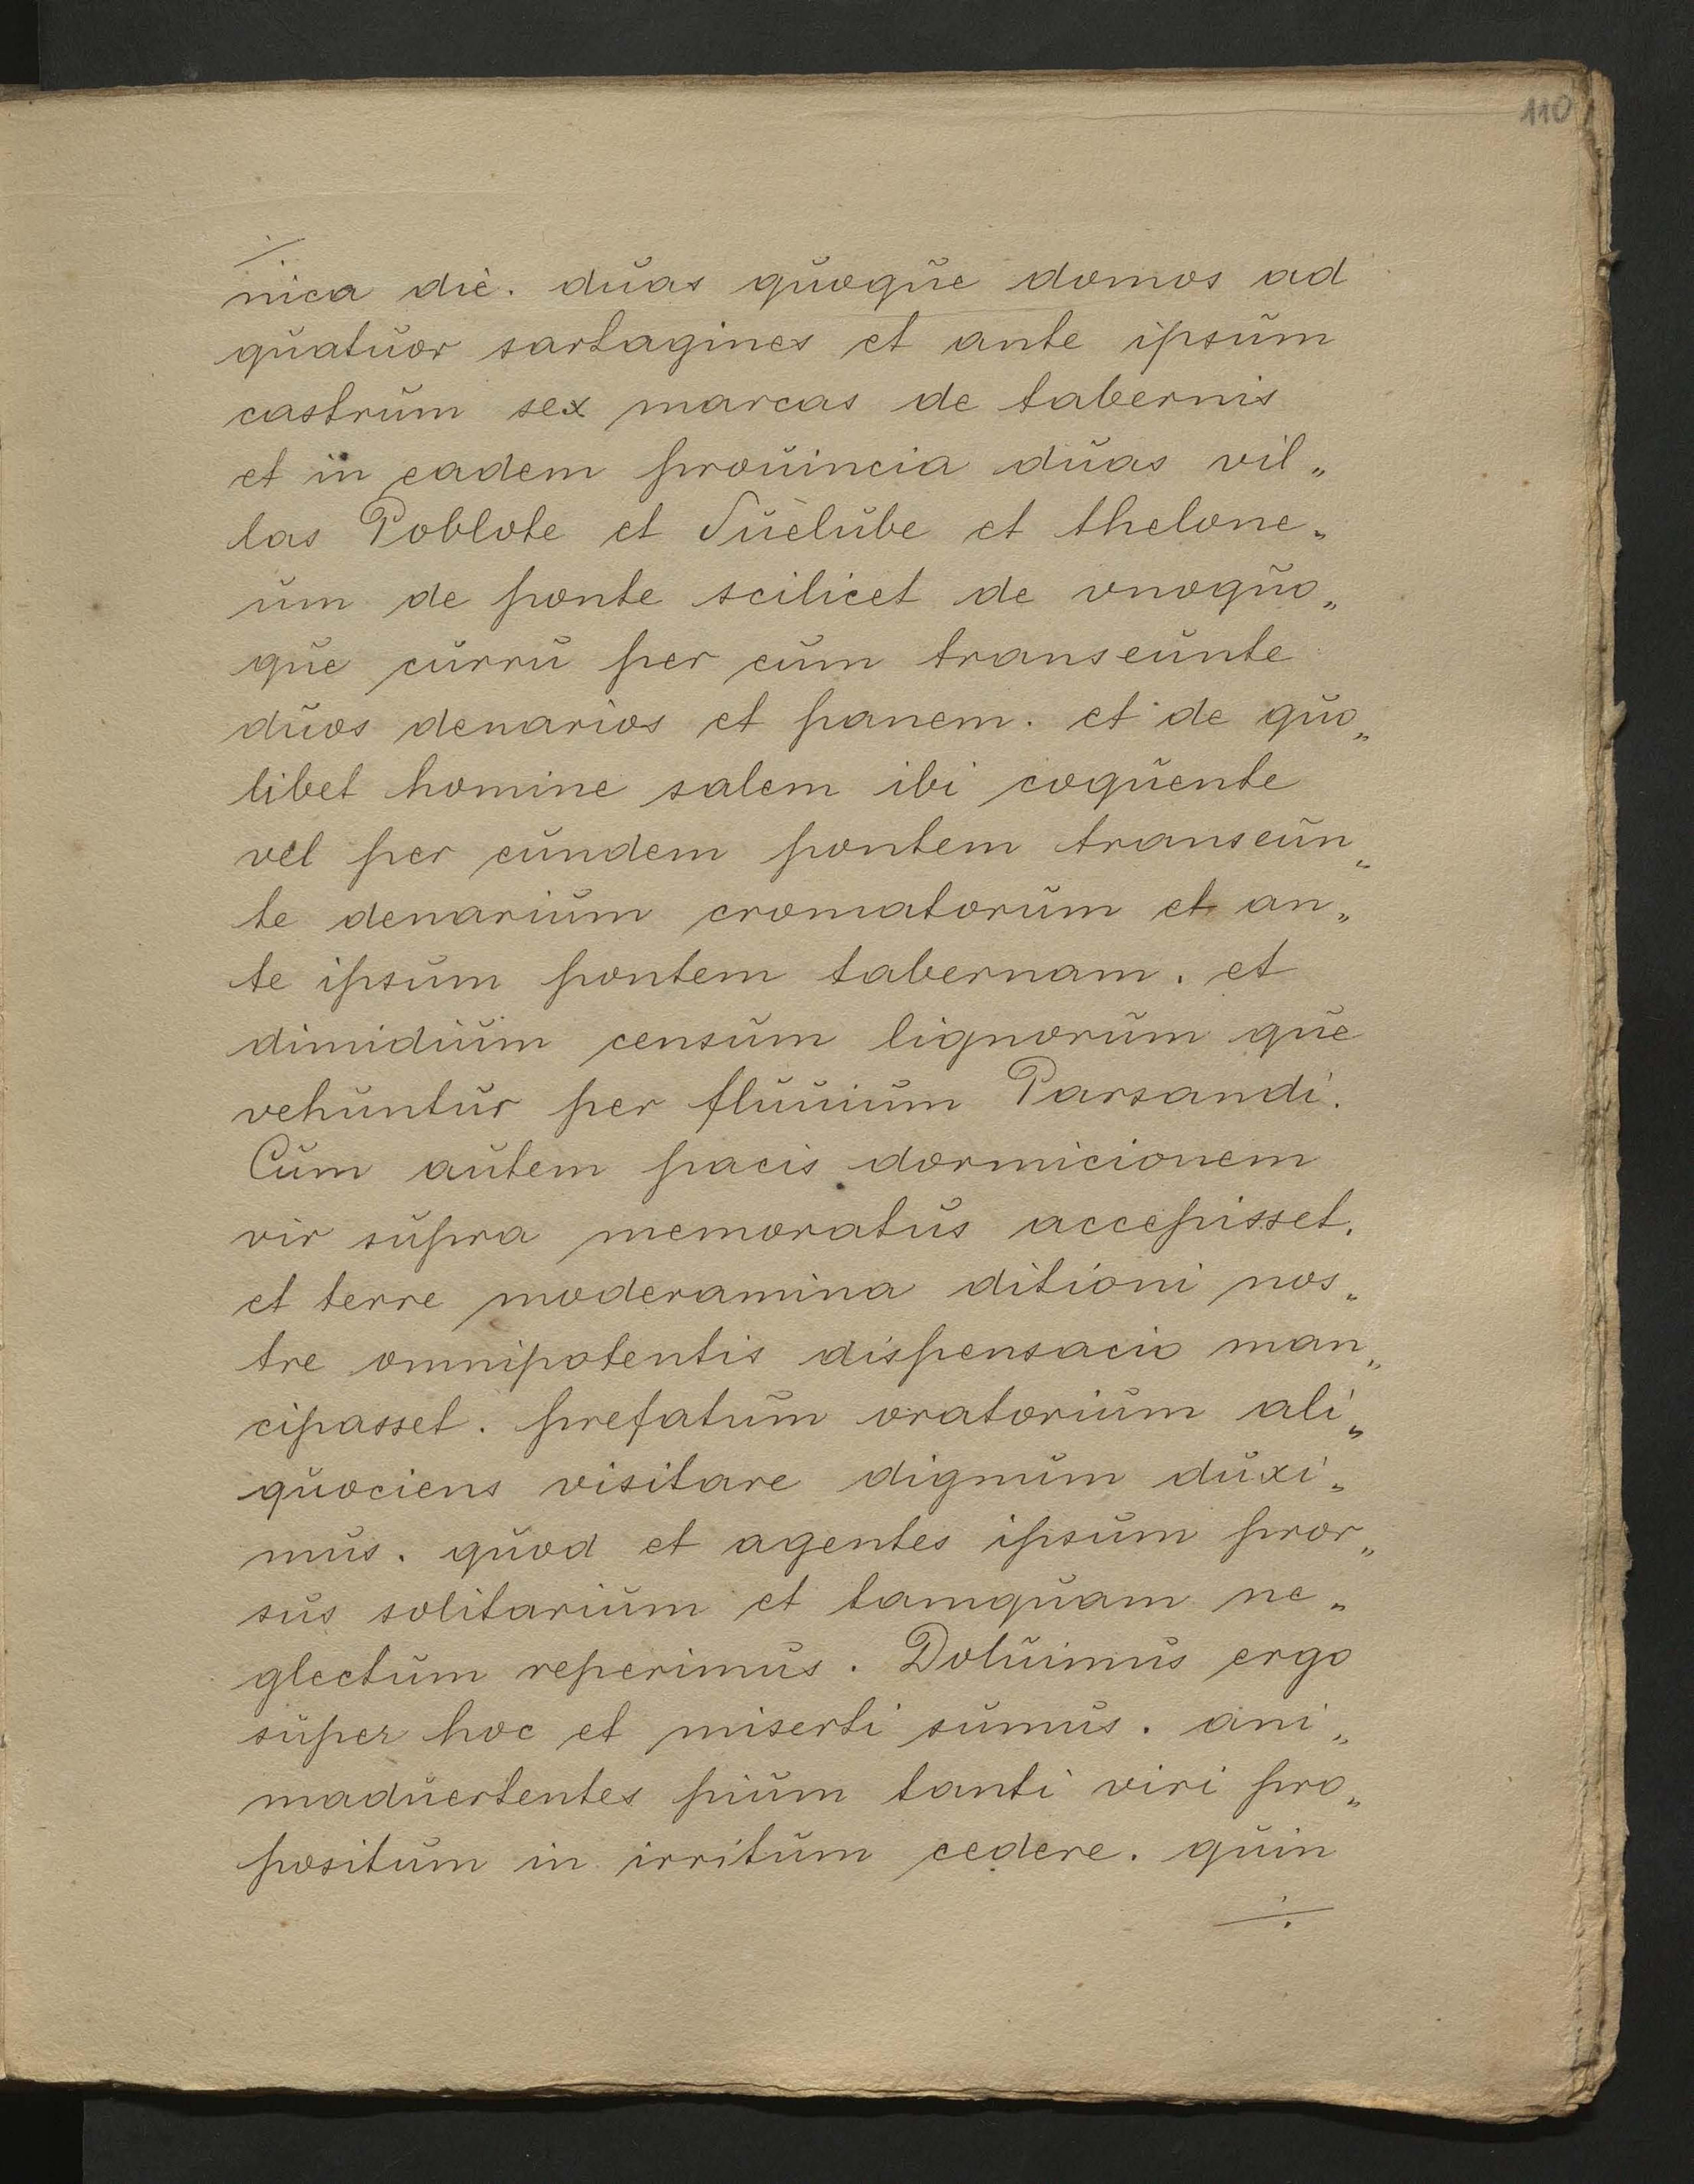 110
nica die. duas quoque domos ad
quatuor sartagines et ante ipsum
castrum sex marcas de tabernis
et in eadem prouincia duas vil„
las Poblote et Suelube et thelone„
um de ponte scilicet de vnoquo„
que curru per eum transeunte
duos denarios et panem. et de quo„
libet homine salem ibi coquente
vel per eundem pontem transeun„
te denarium cromatorum et an„
te ipsum pontem tabernam. et
dimidium censum lignorum que
vehuntur per fluuium Parsandi.
Cum autem pacis dormicionem
vir supra memoratus accepisset.
et terre moderamina ditioni nos„
tre omnipotentis dispensacio man„
cipasset. prefatum oratorium ali„
quociens visitare dignum duxi„
mus. quod et agentes ipsum pror„
sus solitarium et tamquam ne„
glectum reperimus. Doluimus ergo
super hoc et miserti sumus. ani„
maduertentes pium tanti viri pro„
positum in irritum cedere. quin